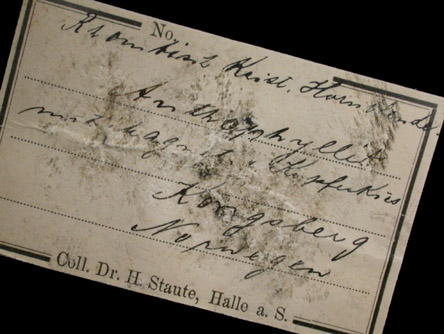 No.
Rhombisch krist. Hornblende
Anthophyllit
mit Magn. u. Kupferkies
Kongsberg
Norwegen
Coll. Dr. H. Staute, Halle a. S.